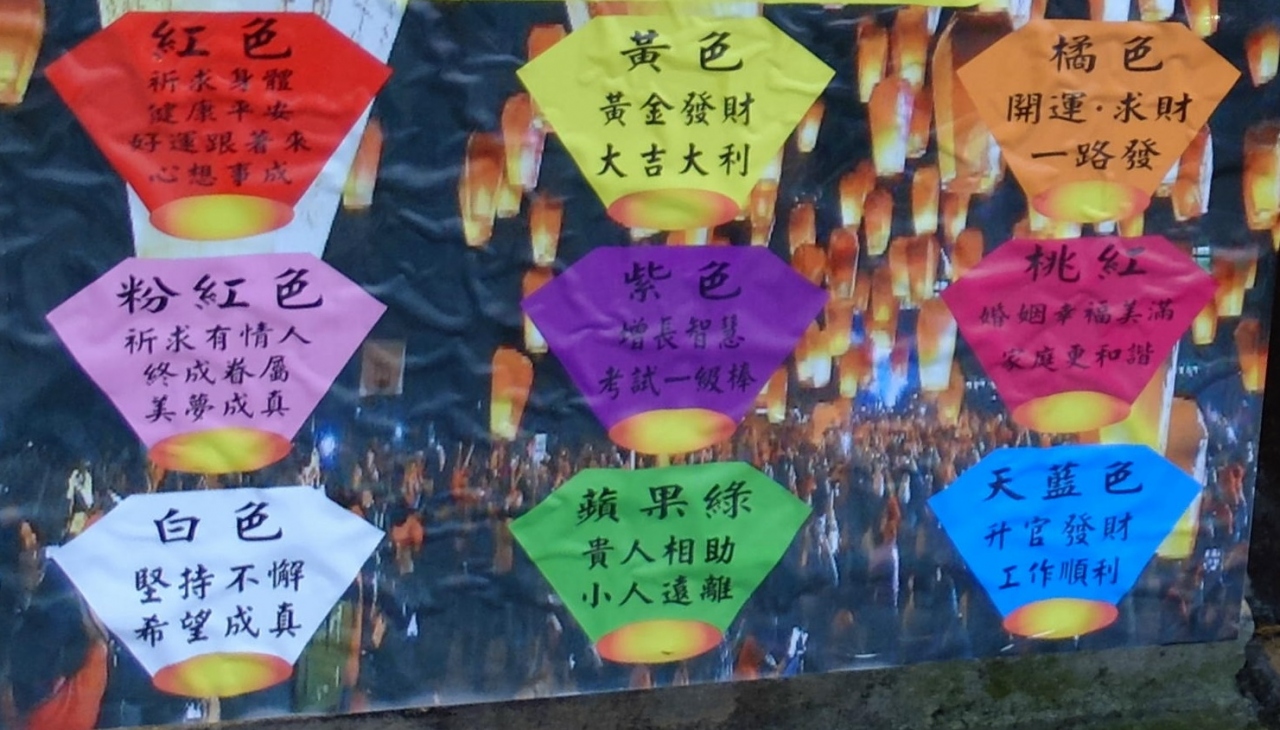 紅色
祈求身體
健康平安
好運跟著來
心想事成
黃色
黃金發財
大吉大利
橘色
開運·求財
一路發
粉紅色
祈求有情人
終成眷屬
美夢成真
紫色
增長智慧
考試一級棒
桃紅
婚姻幸福美滿
家庭更和諧
白色
堅持不懈
希望成真
蘋果綠
貴人相助
小人遠離
天藍色
升官發財
工作順利